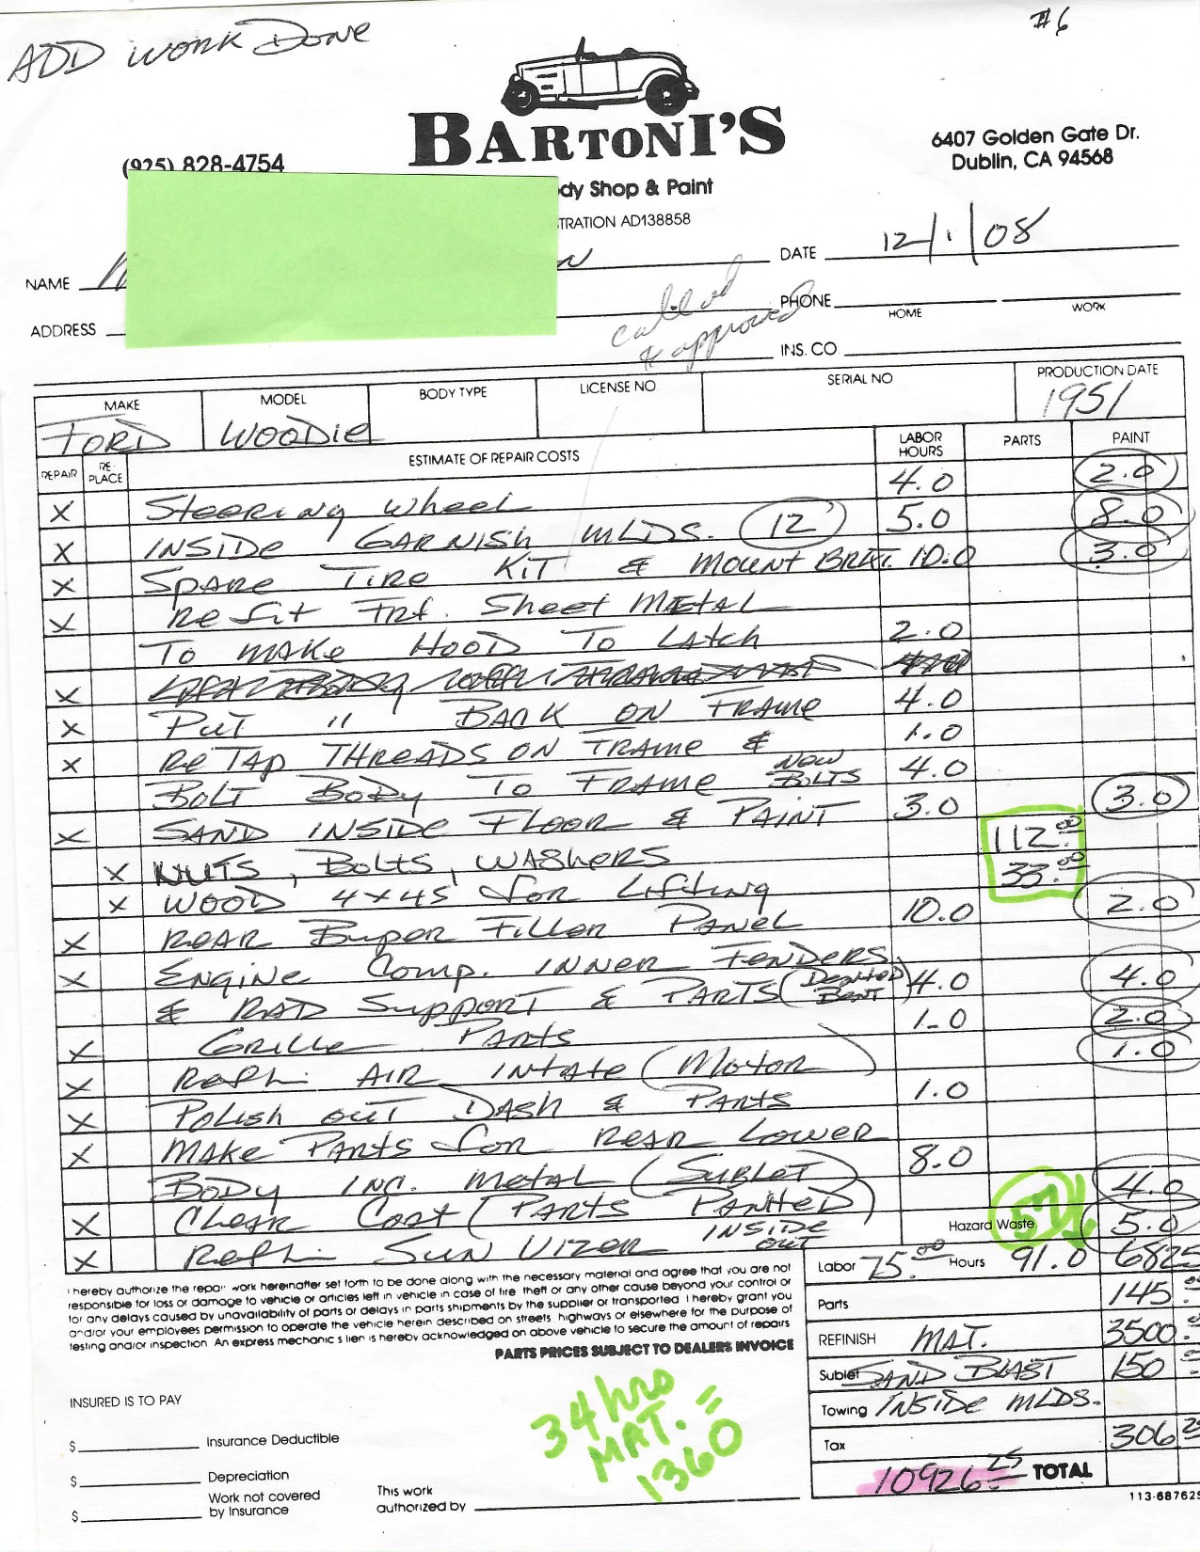 ADD WORK DONE
#6
BARTONI'S
(925) 828-4754
6407 Golden Gate Dr.
Dublin, CA 94568
ody Shop & Paint
TRATION AD138858
NAME
DATE 12/1/08
ADDRESS
PHONE
HOME WORK
called
& approved
INS. CO
MAKE MODEL BODY TYPE LICENSE NO SERIAL NO PRODUCTION DATE
FORD WOODIE 1951
REPAIR RE-PLACE ESTIMATE OF REPAIR COSTS LABOR HOURS PARTS PAINT
X Steering wheel 4.0 2.0
X INSIDE GARNISH MLDS. 12 5.0 8.0
X SPARE TIRE KIT & MOUNT BRKT. 10.0 3.0
X Refit FRT. Sheet METAL
TO MAKE HOOD TO LATCH 2.0
X
X PUT " BACK ON FRAME 4.0
X ReTAP THREADS ON FRAME & 1.0
BOLT BODY TO FRAME NEW BOLTS 4.0
X SAND INSIDE FLOOR & PAINT 3.0 3.0
X NUTS, BOLTS, WASHERS 112.00
X WOOD 4x4S for Lifting 33.00
X REAR Bumper FILLER PANEL 10.0 2.0
X ENGINE COMP. INNER FENDERS
& RAD SUPPORT & PARTS (DENTED BENT) 4.0 4.0
X Grille PARTS 1.0 2.0
X Refhi AIR INTATE (MOTOR) 1.0
X POLISH OUT DASH & PARTS 1.0
X MAKE PARTS for REAR LOWER
BODY INC. METAL (SUBLET) 8.0
X CLEAR COAT (PARTS PAINTED) 4.0
X Refhi SUN VIZER INSIDE OUT 5.0
Hazard Waste 57
I hereby authorize the repair work hereinafter set forth to be done along with the necessary material and agree that you are not
responsible for loss or damage to vehicle or articles left in vehicle in case of fire theft or any other cause beyond your control or
for any delays caused by unavailability of parts or delays in parts shipments by the supplier or transported. I hereby grant you
and/or your employees permission to operate the vehicle herein described on streets, highways or elsewhere for the purpose of
testing and/or inspection. An express mechanic's lien is hereby acknowledged on above vehicle to secure the amount of repairs
PARTS PRICES SUBJECT TO DEALERS INVOICE
Labor 75.00 Hours 91.0 6825
Parts 145.00
REFINISH MAT. 3500.
Sublet SAND BLAST 150
Towing INSIDE MLDS.
Tax 306.25
10926.25 TOTAL
INSURED IS TO PAY
$ Insurance Deductible
$ Depreciation
$ Work not covered
by Insurance
34 hrs
MAT. =
1360
This work
authorized by
113-687625